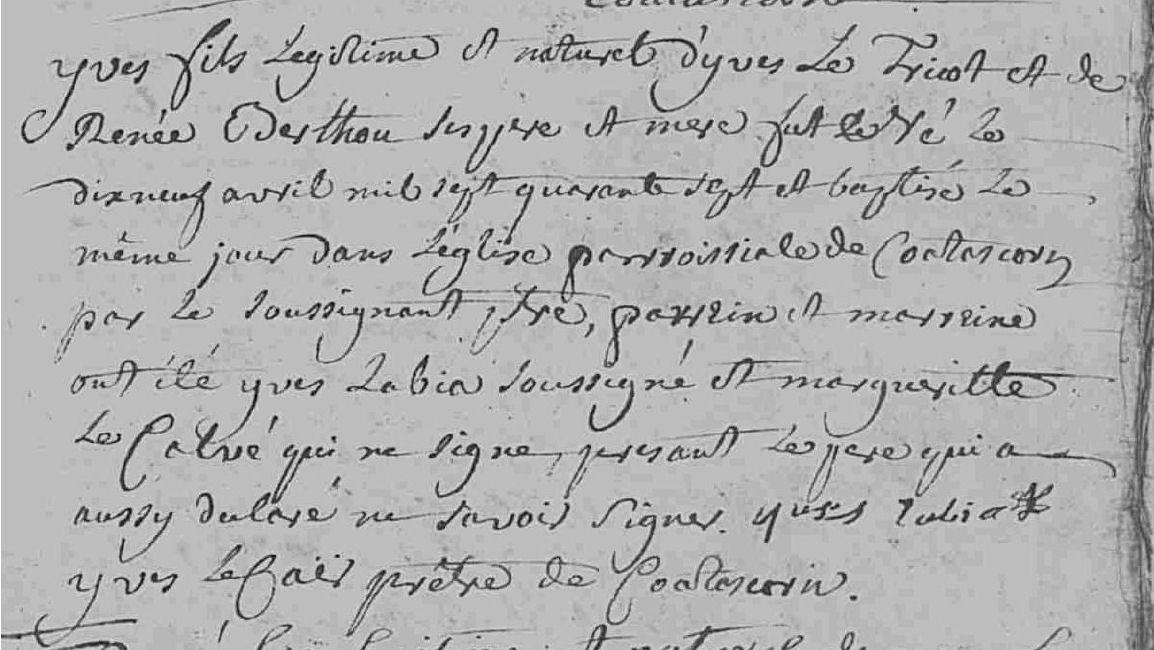 yves fils Legitime et naturel d'yves Le Tricot et de
Renée Berthou ses pere et mere fut le Né le
dixneuf avril mil sept quarante sept et baptisé Le
même jour dans L'église parroissiale de Coatascorn
par Le soussignant ptre, parrein et marreine
ont été yves Labia soussigné et margueritte
Le Calvé qui ne signe, presant Le pere qui a
aussy declaré ne savoir signer. yves Labia
yves Le prêtre de Coatascorn.